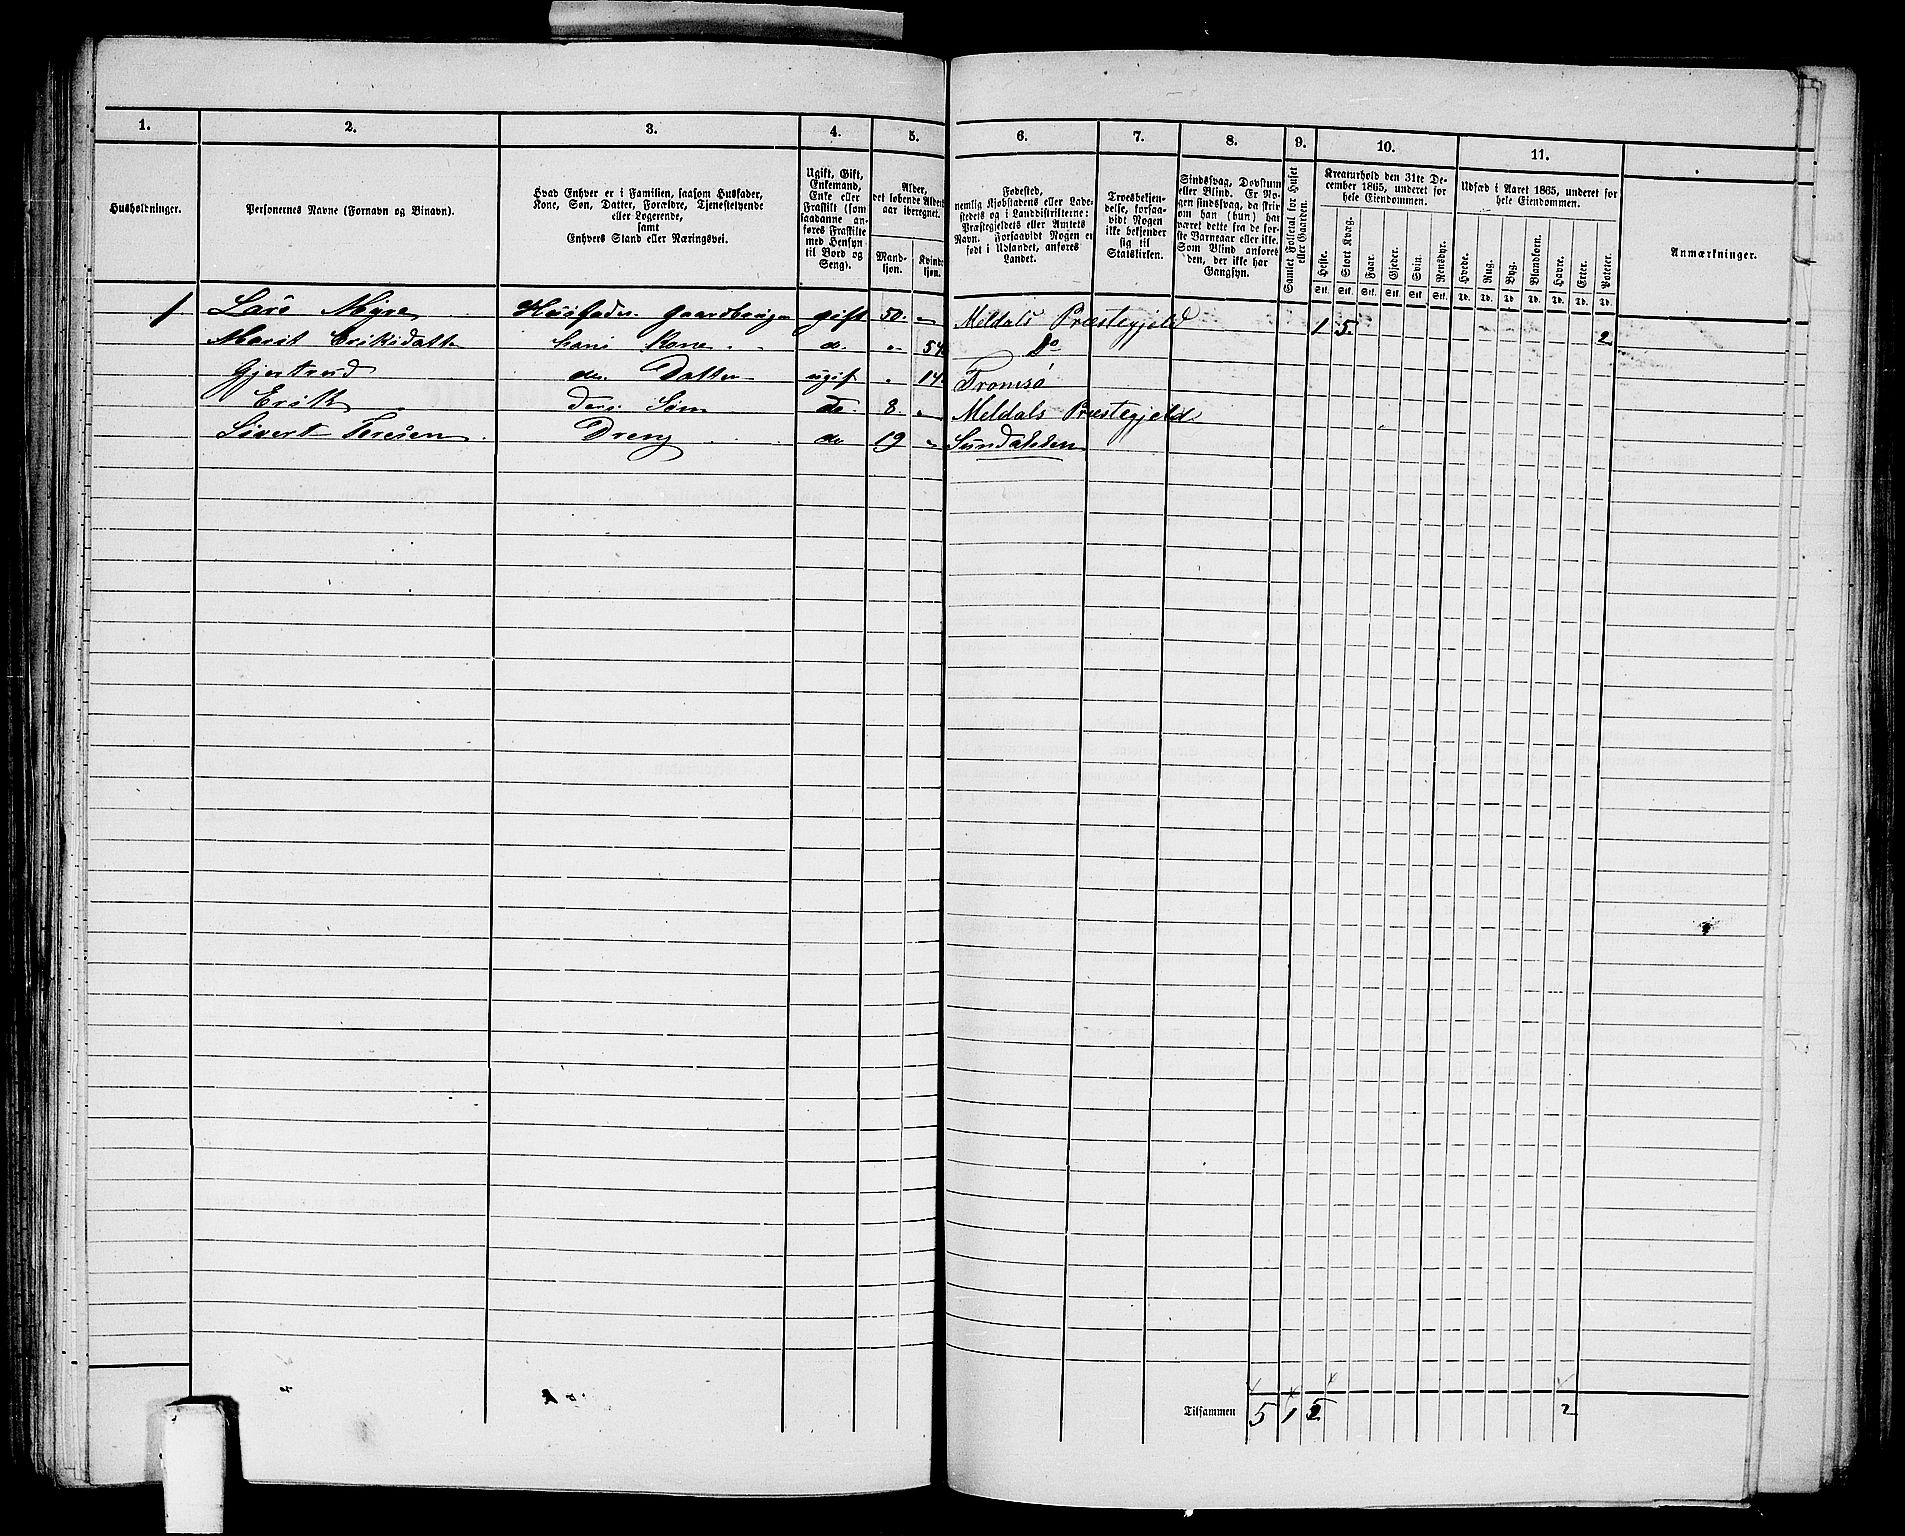 1. 2. 3. 4. 5. 6. 7. 8. 9. 10. 11.
Husholdninger.
Personernes Navne (Fornavn og Binavn).
Hvad Enhver er i Familien, saasom Husfader,
Kone, Søn, Datter, Forældre, Tjenestetyende
eller Logerende,
samt
Enhvers Stand eller Næringsvei.
Ugift, Gift,
Enkemand,
Enke eller
Fraskilt (som
saadanne an-
føres Fraskilte
med Hensyn
til Bord og
Seng).
Alder,
det løbende Alders-
aar iberegnet.
Mand-
kjøn.
Kvinde-
kjøn.
Fødested,
nemlig Kjøbstadens eller Lade-
stedets og i Landdistrikterne:
Præstegjeldets eller Amtets
Navn. Forsaavidt Nogen er
født i Udlandet, anføres
Landet.
Troesbekjen-
delse, forsaa-
vidt Nogen
ikke bekjender
sig til
Statskirken.
Sindssvag, Døvstum
eller Blind. Er No-
gen sindssvag, da skriv
om han (hun) har
været dette fra de for-
ste Barneaar eller ikke.
Som Blind anføres
den, der ikke har
Gangsyn.
Samlet Folketal for Huset
eller Gaarden.
Kreaturhold den 31te De-
cember 1865, underet for
hele Eiendommen.
Heste. Stort Kvæg. Faar. Gjeder. Svin. Rensdyr.
Stk. Stk. Stk. Stk. Stk. Stk.
Udsæd i Aaret 1865, underet for
hele Eiendommen.
Hvede. Rug. Byg. Blandkorn. Havre. Erter. Poteter.
Td. Td. Td. Td. Td. Td. Td.
Anmærkninger.
1 Lars Myre Husfader Gaardbruger gift 50. „ Meldals Præstegjeld 1 5. 2
Marit Eriksdatter hans Kone do. „ 54 Do
Gjertrud des. Datter ugift „ 14 Tromsø
Erik des. Søn do 8. „ Meldals Præstegjeld
Sivert Dreng do 19 „ Sundalsøren
Tilsammen 5 1 5 2